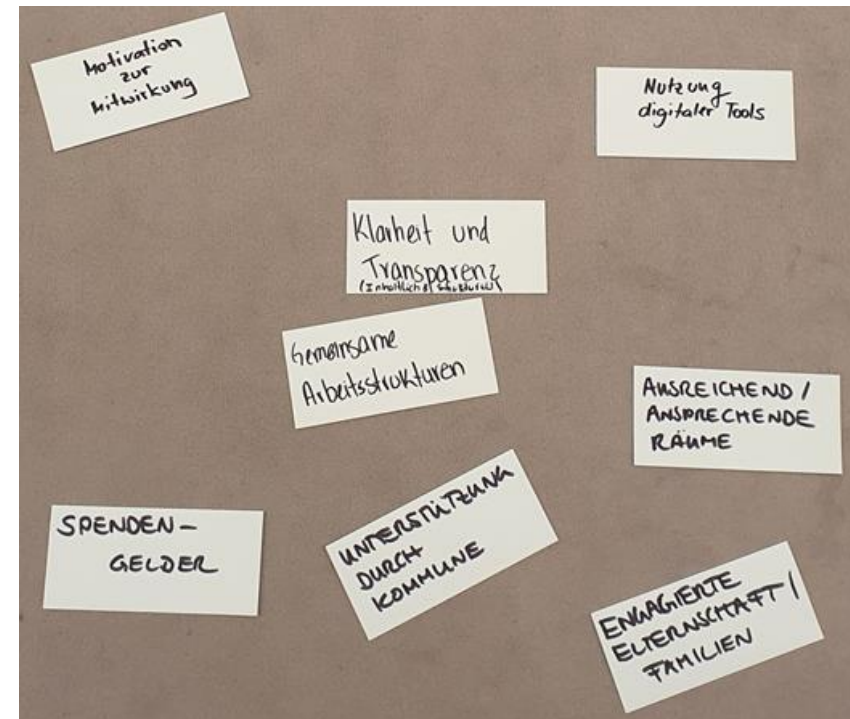 Motivation
zur
Mitwirkung
Nutzung
digitaler Tools
Klarheit und
Transparenz
Gemeinsame
Arbeitsstrukturen
AUSREICHEND /
ANSPRECHENDE
RÄUME
SPENDEN-
GELDER
UNTERSTÜTZUNG
DURCH
KOMMUNE
ENGAGIERTE
ELTERNSCHAFT /
FAMILIEN